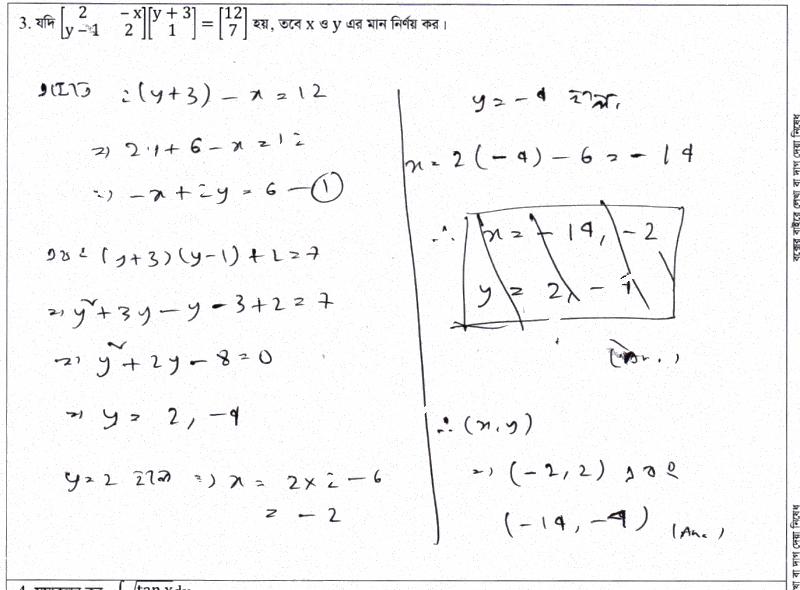 3. যদি [2 −x; y − 1 2] [y + 3; 1] = [12; 7] হয়, তবে x ও y এর মান নির্ণয় কর।
2(y+3) − x = 12
⇒ 2y + 6 − x = 12
⇒ −x + 2y = 6 — ①
এবং (y+3)(y−1) + 2 = 7
⇒ y² + 3y − y − 3 + 2 = 7
⇒ y² + 2y − 8 = 0
⇒ y = 2, −4
y = 2 হলে ⇒ x = 2 × 2 − 6
= −2
y = −4 হলে,
x = 2(−4) − 6 = −14
∴ x = −14, −2
y = 2, −4
(Ans.)
∴ (x, y)
⇒ (−2, 2) এবং
(−14, −4) (Ans.)
বক্সের বাইরে লেখা বা দাগ দেয়া নিষেধ